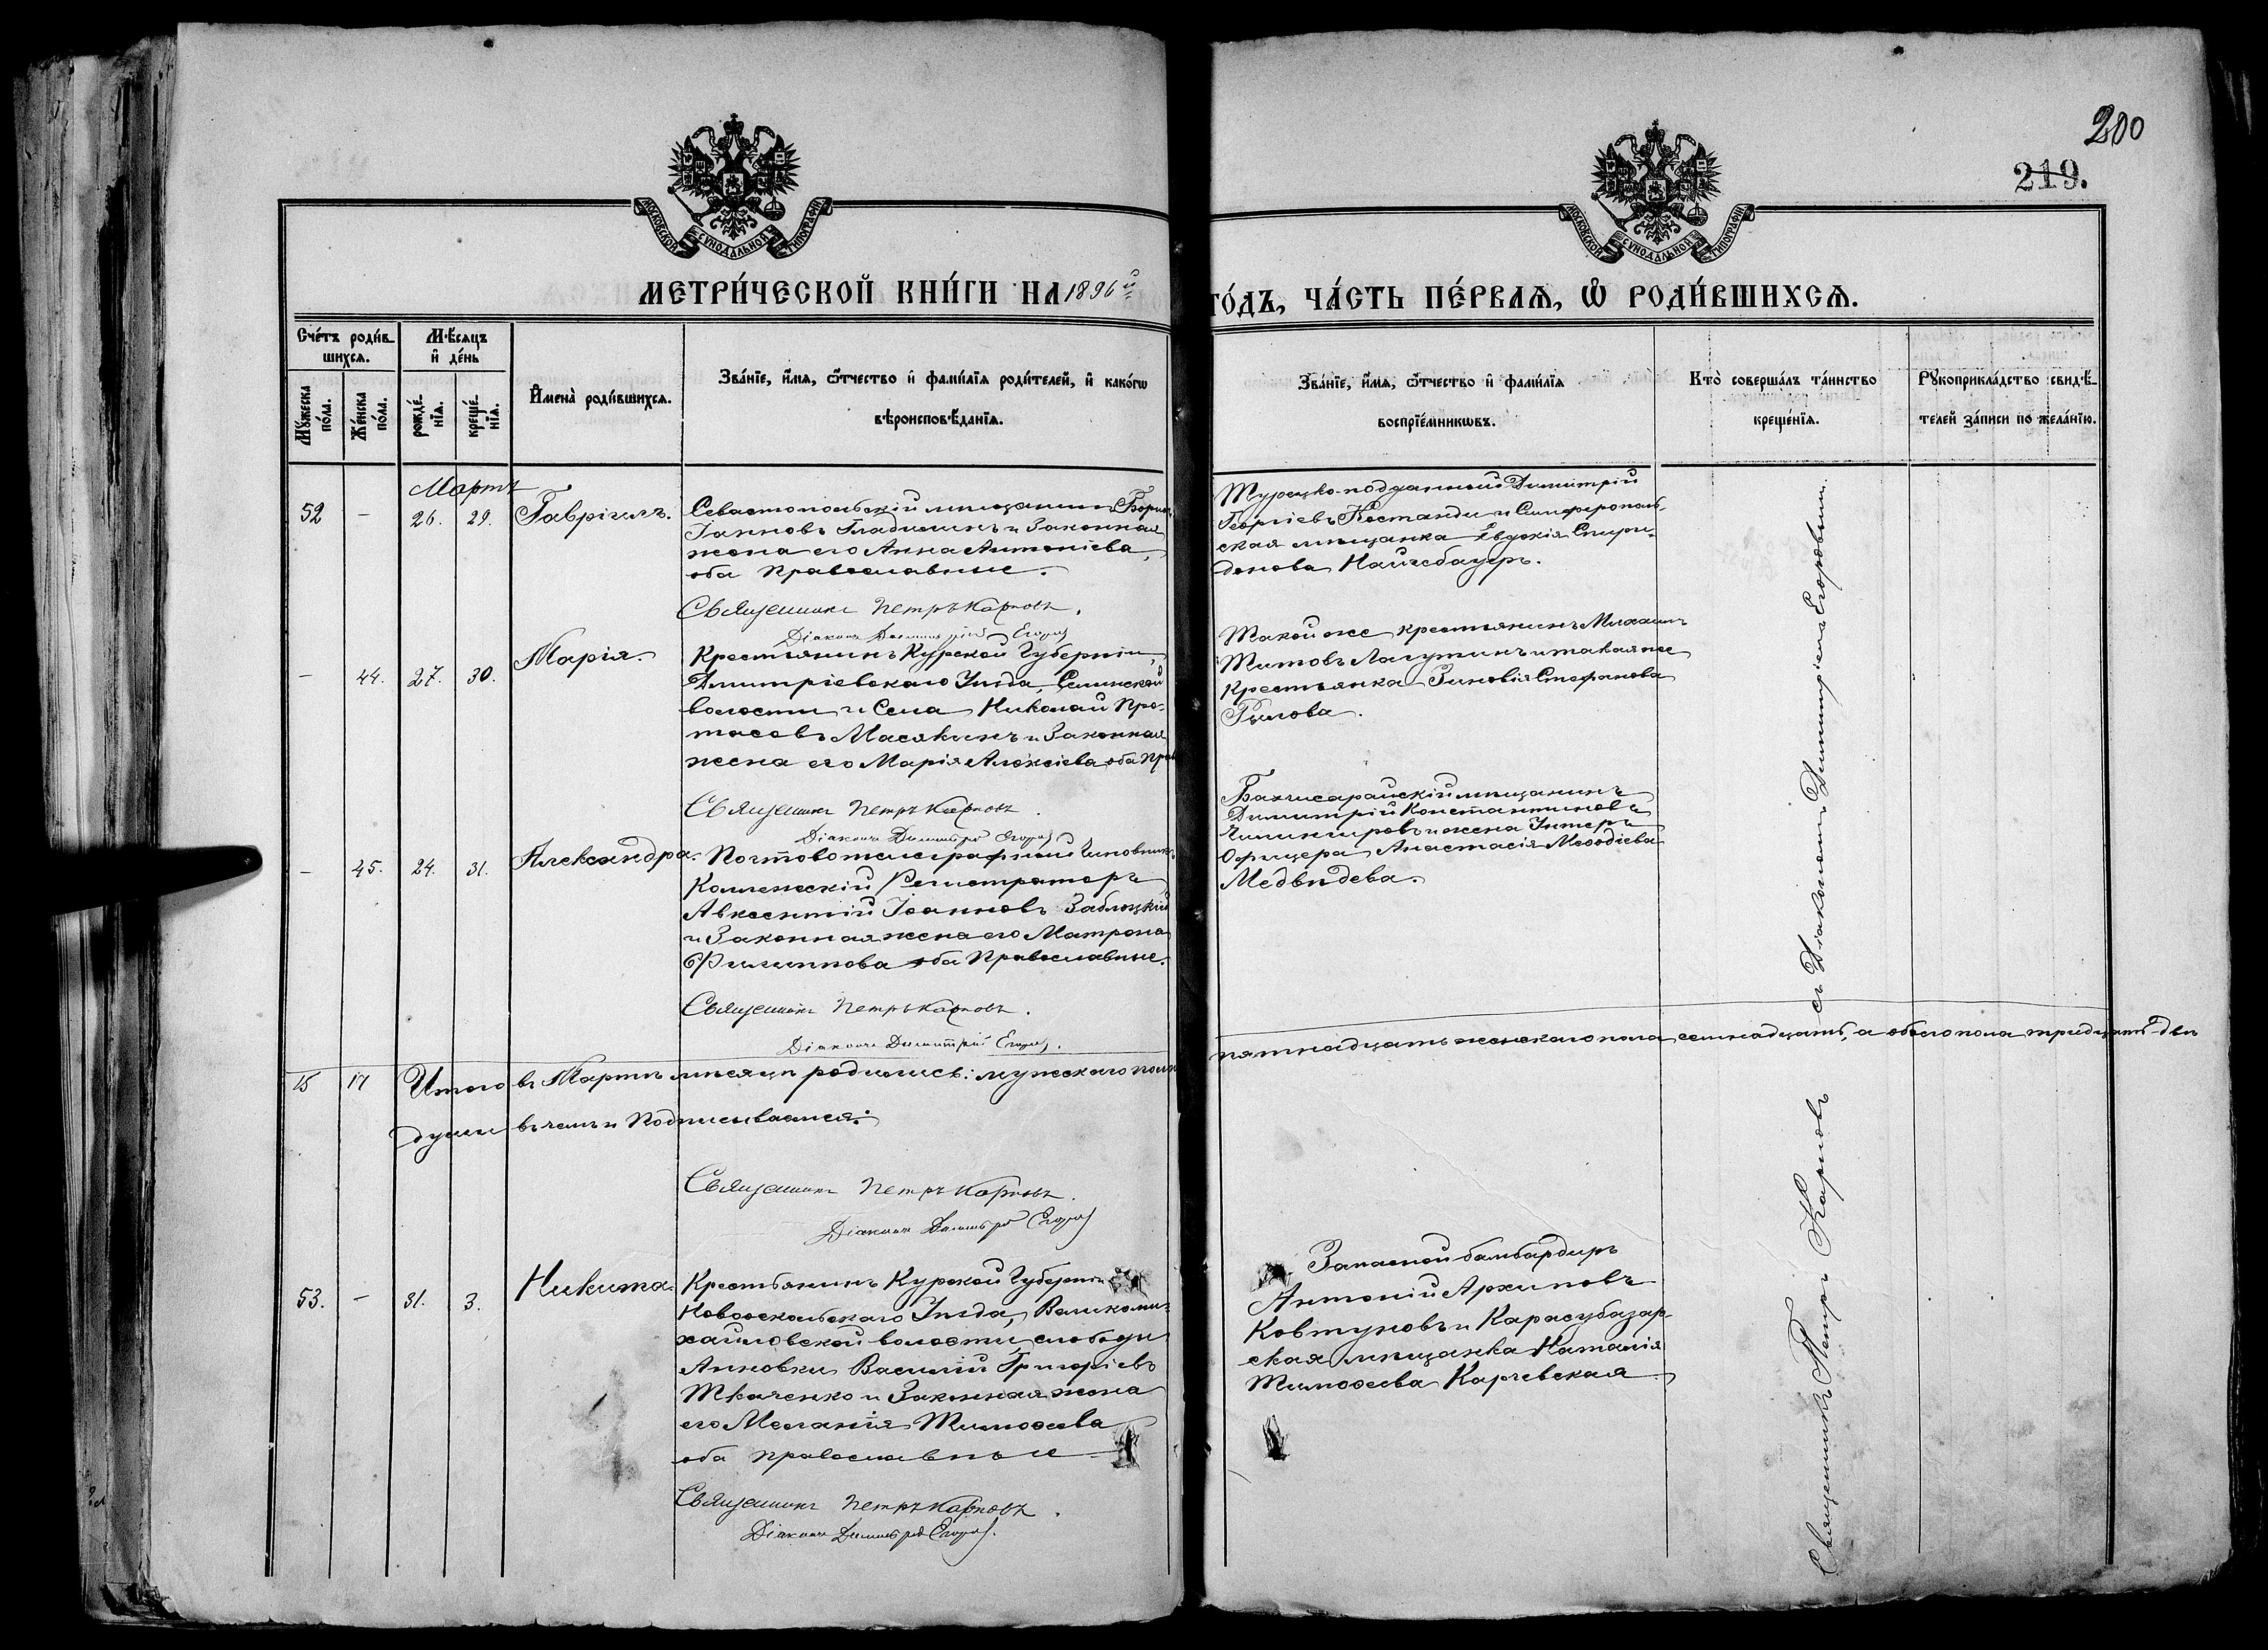 200
219.
МОСКОВСКОЙ СѴНОДАЛЬНОЙ ТИПОГРАФІИ
МОСКОВСКОЙ СѴНОДАЛЬНОЙ ТИПОГРАФІИ
МЕТРИ́ЧЕСКОЙ КНИ́ГИ НА 1896й
ГО́ДЪ, ЧА́СТЬ ПЕ́РВАѦ, Ѡ҆ РОДИ́ВШИХСѦ.
Сче́тъ роди́в-
шихсѧ.
Мꙋ́жеска по́ла.
Же́нска по́ла.
Мѣ́сѧцъ
и҆ де́нь
рожде́-
нїѧ.
креще́-
нїѧ.
И҆мена̀ роди́вшихсѧ.
Зва́нїе, и҆́мѧ, ѻ҆́тчество и҆ фами́лїѧ роди́телей, и҆ како́гѡ
вѣроисповѣ́данїѧ.
Зва́нїе, и҆́мѧ, ѻ҆́тчество и҆ фами́лїѧ
воспрїе́мникѡвъ.
Кто̀ соверша́лъ та́инство
креще́нїѧ.
Рꙋкоприкла́дство свидѣ́-
телей за́писи по жела́нїю.
Мартъ
52 — 26. 29. Гавріилъ.
Севастопольскій мещанинъ
Іоанновъ Гладилинъ и Законная
жена его Анна Антоніева,
оба Православные.
Священникъ Петръ Карповъ.
Діаконъ Димитрій Егоров
Турецко-подданный Димитрій
Георгіевъ Костанди и Симферополь-
ская мѣщанка Евдокія Спири-
донова
— 44. 27. 30. Марія.
Крестьянинъ Курской Губерніи,
Дмитріевскаго Уѣзда, Селинской
волости и Села Николай Про-
тасовъ Масякинъ и Законная
жена его Марія Алексіева оба Прав
Священникъ Петръ Карповъ.
Діаконъ Димитрій Егоров
Такой же крестьянинъ Михаилъ
Титовъ Лагутинъ и такая же
крестьянка Зиновія Стефанова
Рылова.
— 45. 24. 31. Александра.
Почтовотелеграфный Чиновникъ
Коллежскій Регистраторъ
Авксентій Іоанновъ Заблоцкій
и Законная жена его Матрона
Филиппова оба Православные.
Священникъ Петръ Карповъ.
Діаконъ Димитрій Егоров.
Бахчисарайскій мѣщанинъ
Димитрій Константиновъ
Чилингировъ и жена Унтеръ
Офицера Анастасія Меѳодіева
Медвѣдева.
15 17 Итого въ Мартѣ мѣсяцѣ родились: мужескаго пола
пятнадцать женскаго пола семнадцать, а обоего пола тридцать двѣ
души въ чемъ и Подписываемся:
Священникъ Петръ Карповъ.
Діаконъ Димитрій Егоров
53. — 31. 3. Никита.
Крестьянинъ Курской Губерніи
Новооскольскаго Уѣзда, Великоми-
хайловской волости, слободы
Анновки Василій Григоріевъ
Ткаченко и Законная жена
его Меланія Тимоѳеева
оба православные
Священникъ Петръ Карповъ.
Діаконъ Димитрій Егоров.
Запасной бамбардиръ
Антоній Архиповъ
Ковтуновъ и Карасубазар-
ская мѣщанка Наталія
Тимоѳеева Карчевская
Священникъ Петръ Карповъ съ Діакономъ Димитріемъ Егоровымъ.